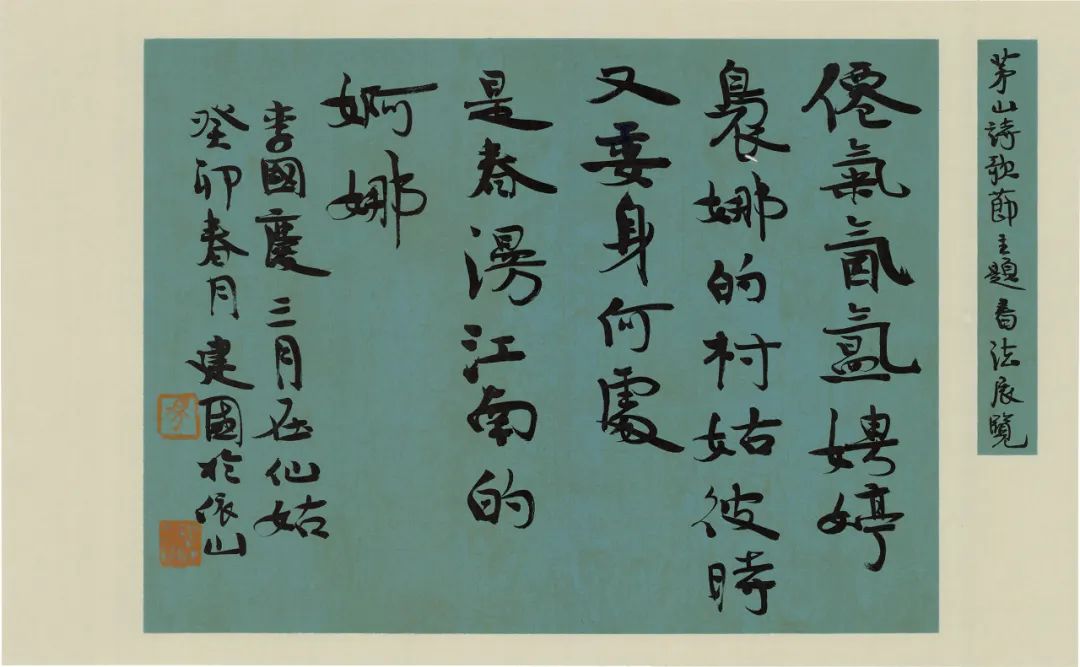 茅山詩歌節主題書法展覽
僊氣氤氳娉婷
裊娜的村姑彼時
又要身何處
是春漫江南的
婀娜
李國慶 三月在仙姑
癸卯春月建國於依山